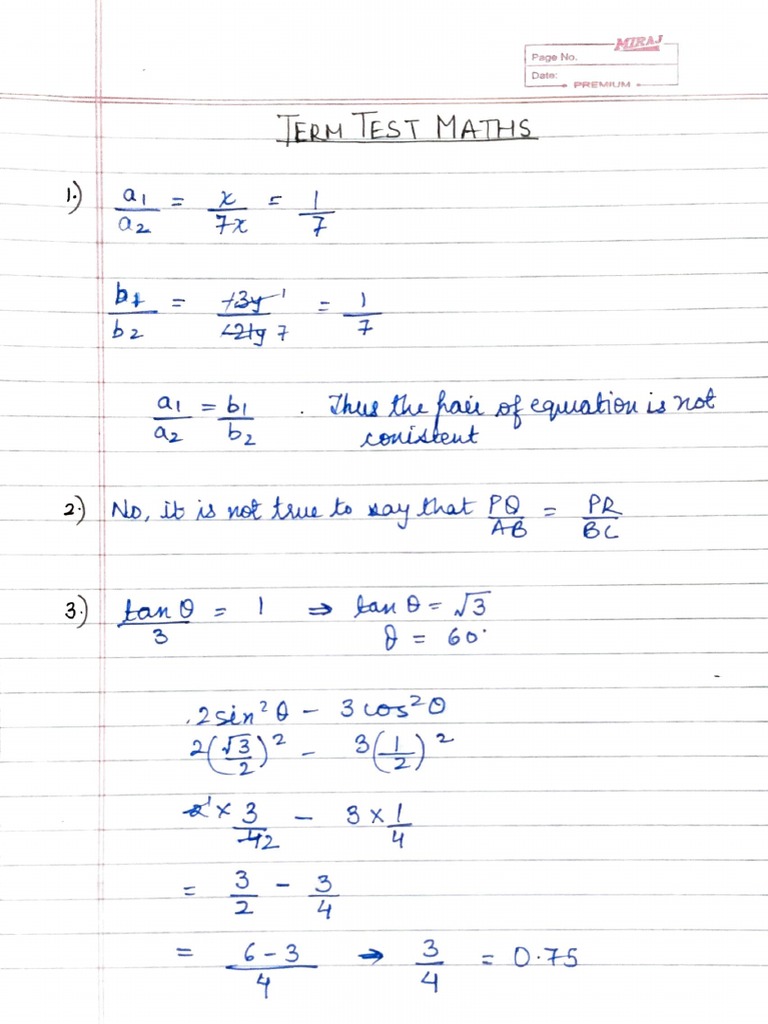 MIRAJ
Page No.
Date:
PREMIUM
TERM TEST MATHS
1.) a1/a2 = x/7x = 1/7
b1/b2 = +3y 1/+21y 7 = 1/7
a1/a2 = b1/b2 . Thus the pair of equation is not
conistent
2.) No, it is not true to say that PQ/AB = PR/BC
3.) tan θ/3 = 1 ⇒ tan θ = √3
θ = 60°
.2sin²θ - 3cos²θ
2(√3/2)² - 3(1/2)²
2 1 × 3/4 2 - 3 × 1/4
= 3/2 - 3/4
= 6-3/4 → 3/4 = 0.75